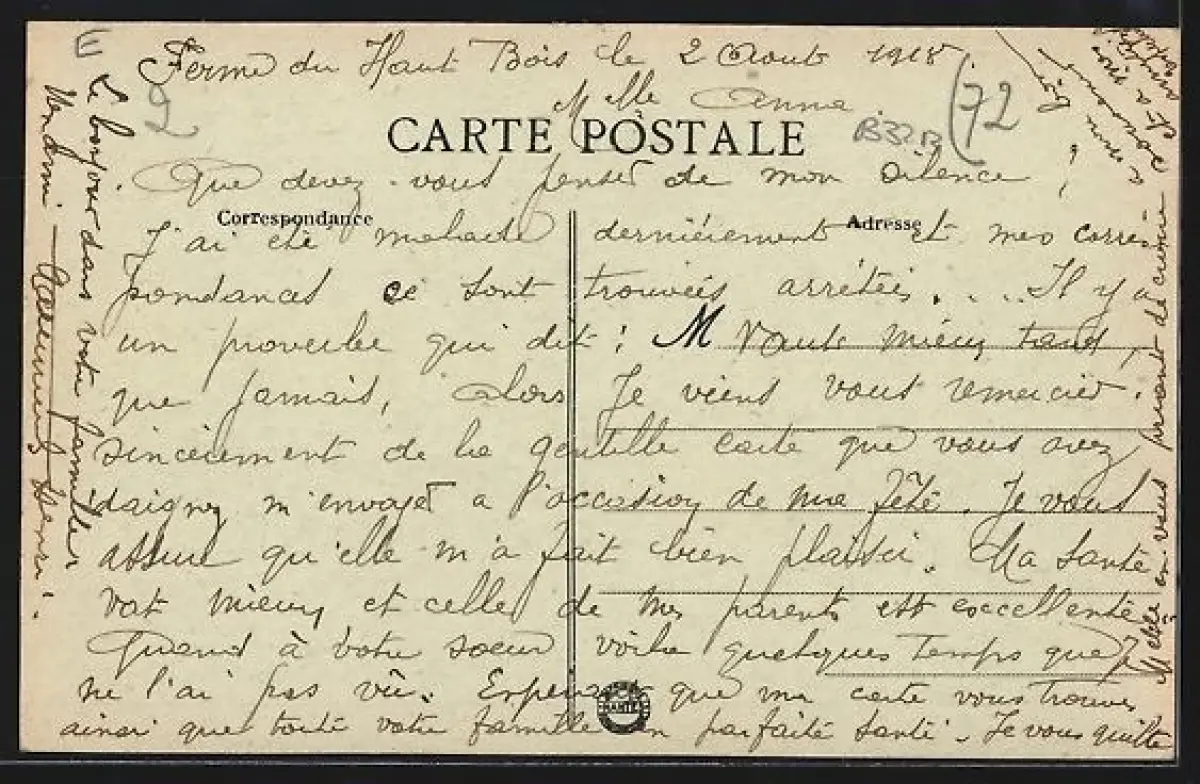 Ferme du Haut Bois le 2 Aout 1918.
Melle Anna.
(72
2
CARTE POSTALE
Que devez-vous penser de mon silence ;
Correspondance
Adresse
J'ai été malade dernièrement et mes corres
pondances ce sont trouvées arrétées. . . . Il y a
un proverbe qui dit : M Vaut mieux tard,
que jamais, Alors Je viens vous remercier.
sincèrement de la gentille carte que vous avez
daignez m'envoyer a l'occasion de ma fête. Je vous
assure qu'elle m'a fait bien plaisir. Ma santé
vat mieux et celle de mes parents est exccellente
Quand à votre soeur voila quelques temps que je
ne l'ai pas vù. Esperant que ma carte vous trouve
ainsi que toute votre famille en parfaite santé. Je vous quitte
NANTES
Melle en vous priant de croire
a mon
Le bonjour dans votre famille
Un ami
Henri.